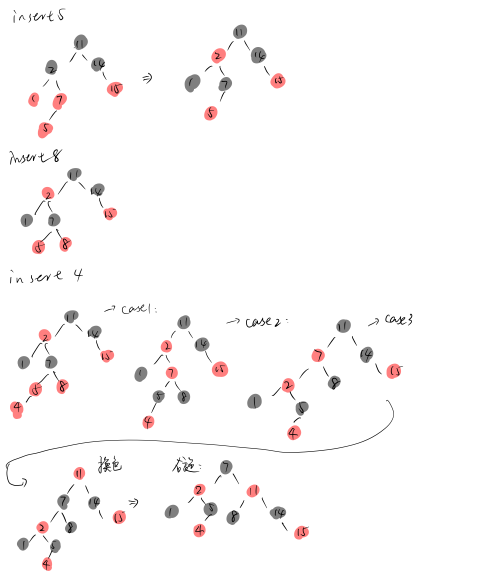 insert 5
11
2 14
1 7 15
5
⇒
11
2 14
1 7 15
5
insert 8
11
2 14
1 7 15
5 8
insert 4
11
2 14
1 7 15
5 8
4
→ case1:
11
2 14
1 7 15
5 8
4
→ case2:
11
7 14
2 8 15
1 5
4
→ case3
换色
11
7 14
2 8 15
1 5
4
⇒
右旋:
7
2 11
1 5 8 14
4 15